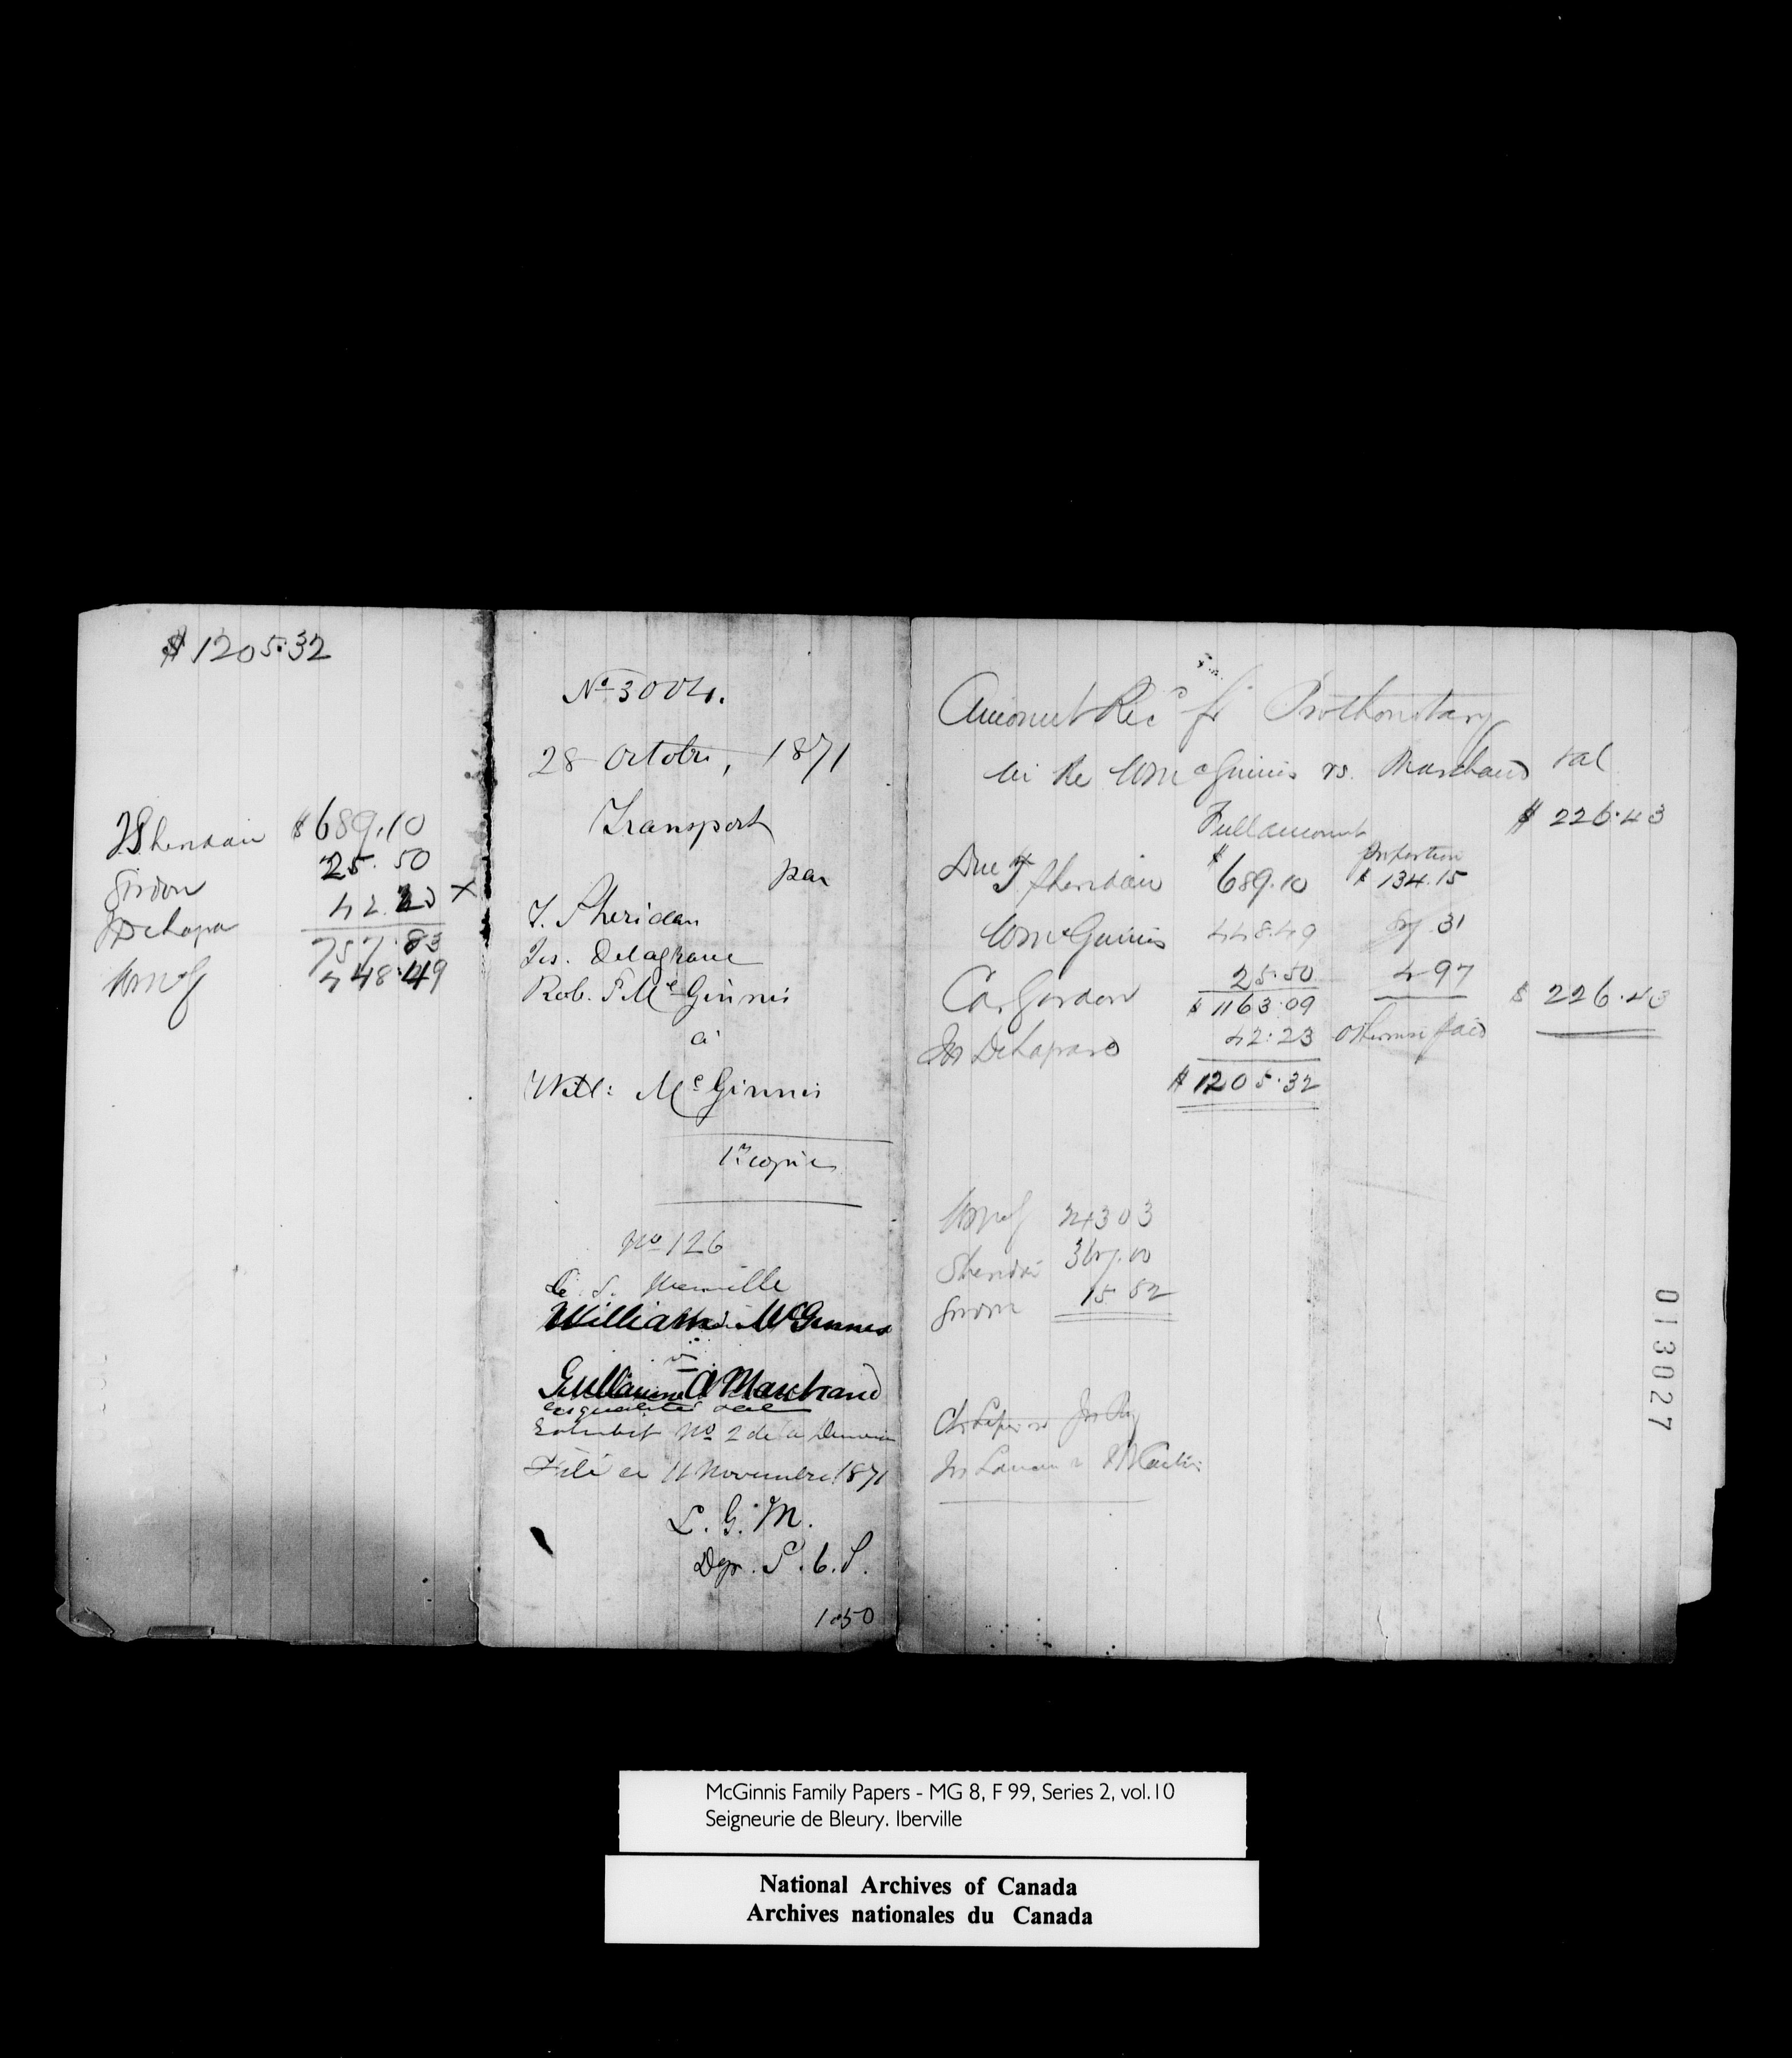 $1205.32
J Sheridan $689.10
Gordon 25.50
42.23 X
757.83
Wm McG 448.49
No 3004.
28 Octobre, 1871
Transport
par
T. Sheridan
Jos. Delagrave
Rob. S Mc Ginnis
à
Will: Mc Ginnis
1re copie
No 126
C. S. Iberville
William McGinnis
vs
Guillaume A Marchand
esqualité et al
Exhibit No 2 de la Demande
Filé ce 11 Novembre 1871
L. G. M.
Dep. P. C. S.
1.50
Amount Rec'd fr Prothonotary
in Re Wm McGinnis vs. Marchand et al
Full amount $ 226.43
proportion
Due T Sheridan $689.10 $134.15
Wm McGinnis 448.49 87.31
Gordon 25.50 4.97
$1163.09 $226.43
Jos Delagrave 42.23 otherwise paid
$1205.32
Wm McG 243 03
Sheridan 367.00
Gordon 15.52
013027
McGinnis Family Papers - MG 8, F 99, Series 2, vol.10
Seigneurie de Bleury. Iberville
National Archives of Canada
Archives nationales du Canada